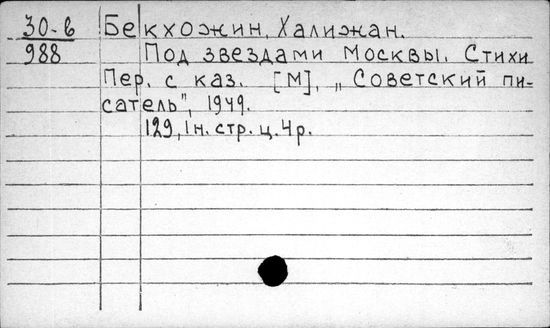 30-в Бекхожин, Халижан.
988 Под звездами Москвы. Стихи
Пер. с каз. [М], „Советский пи-
сатель", 1949.
129, 1 н. стр. ц. 4 р.